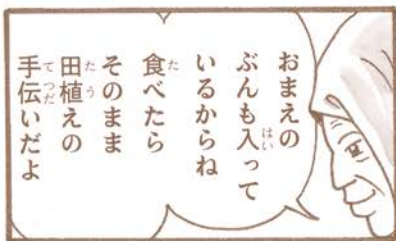 おまえの
ぶんも入って
いるからね
食べたら
そのまま
田植えの
手伝いだよ